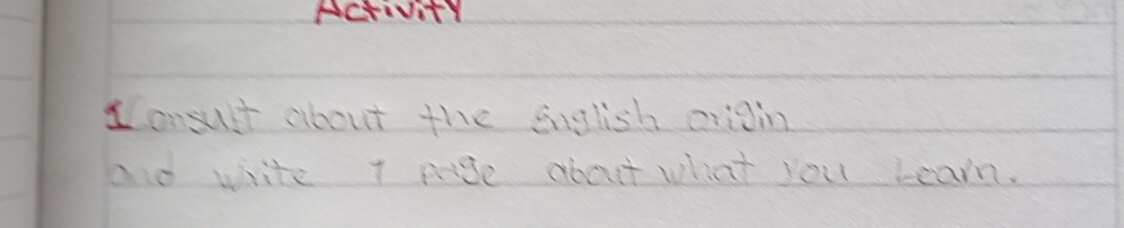 Activity
1 Consult about the English origin
and write 1 page about what you Learn.